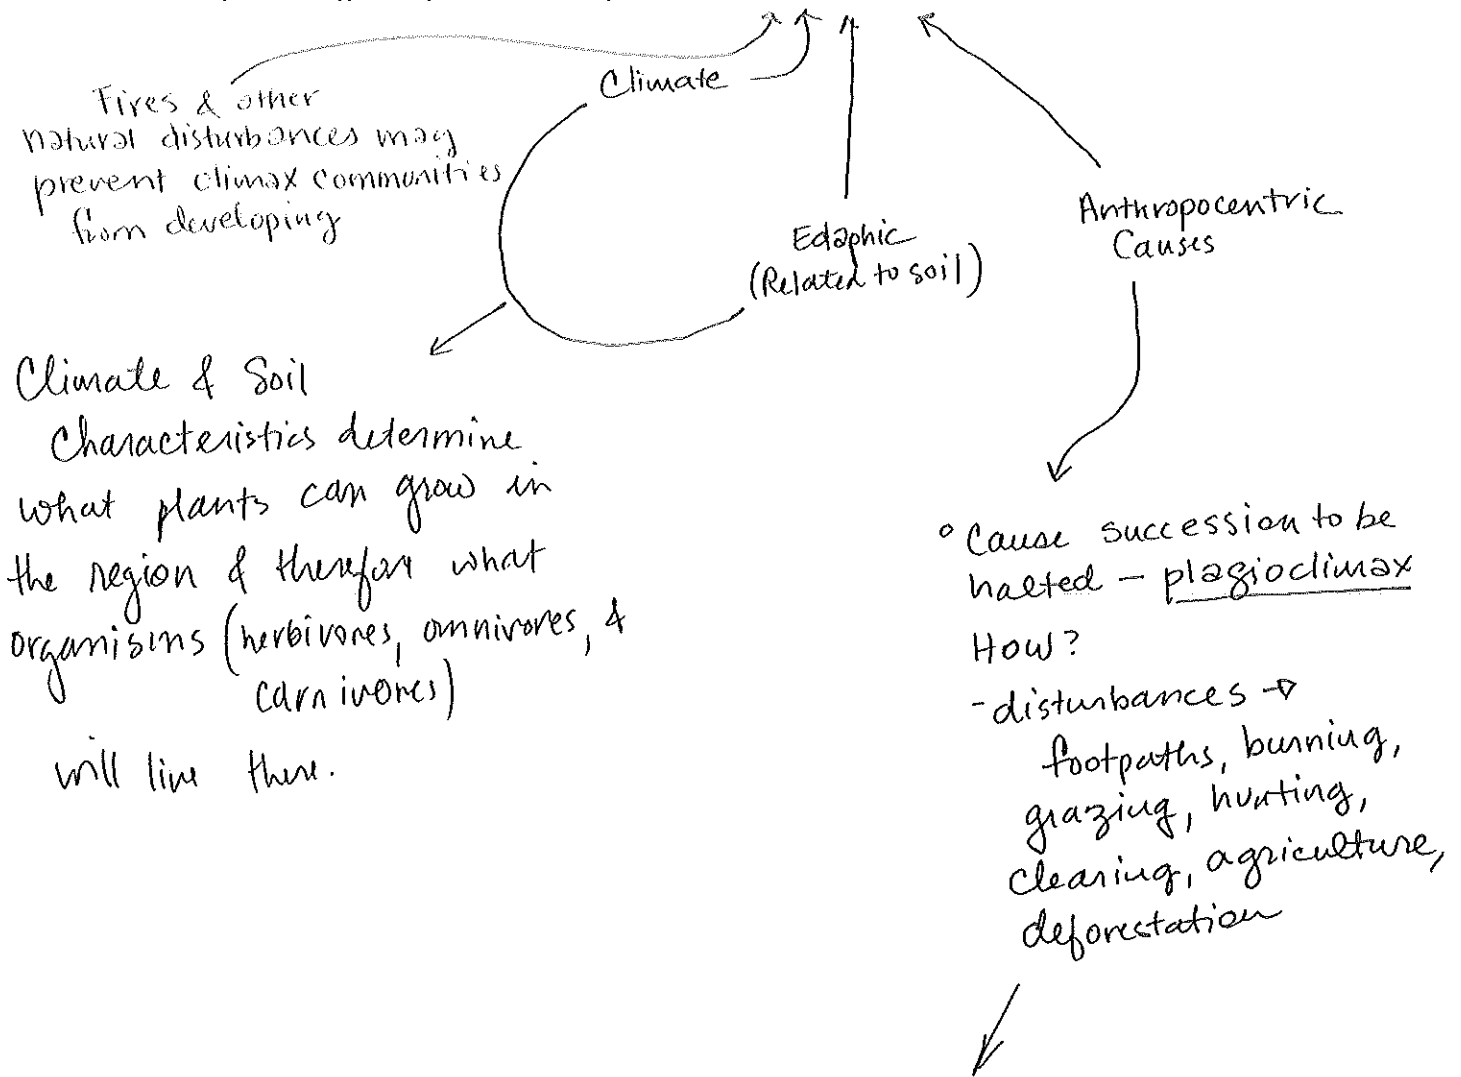 Fires & other
natural disturbances may
prevent climax communities
from developing
Climate
Edaphic
(Related to soil)
Anthropocentric
Causes
Climate & Soil
Characteristics determine
what plants can grow in
the region & therefore what
organisms (herbivores, omnivores, &
carnivores)
will live there.
° Cause succession to be
halted - plagioclimax
How?
- disturbances →
footpaths, burning,
grazing, hunting,
clearing, agriculture,
deforestation